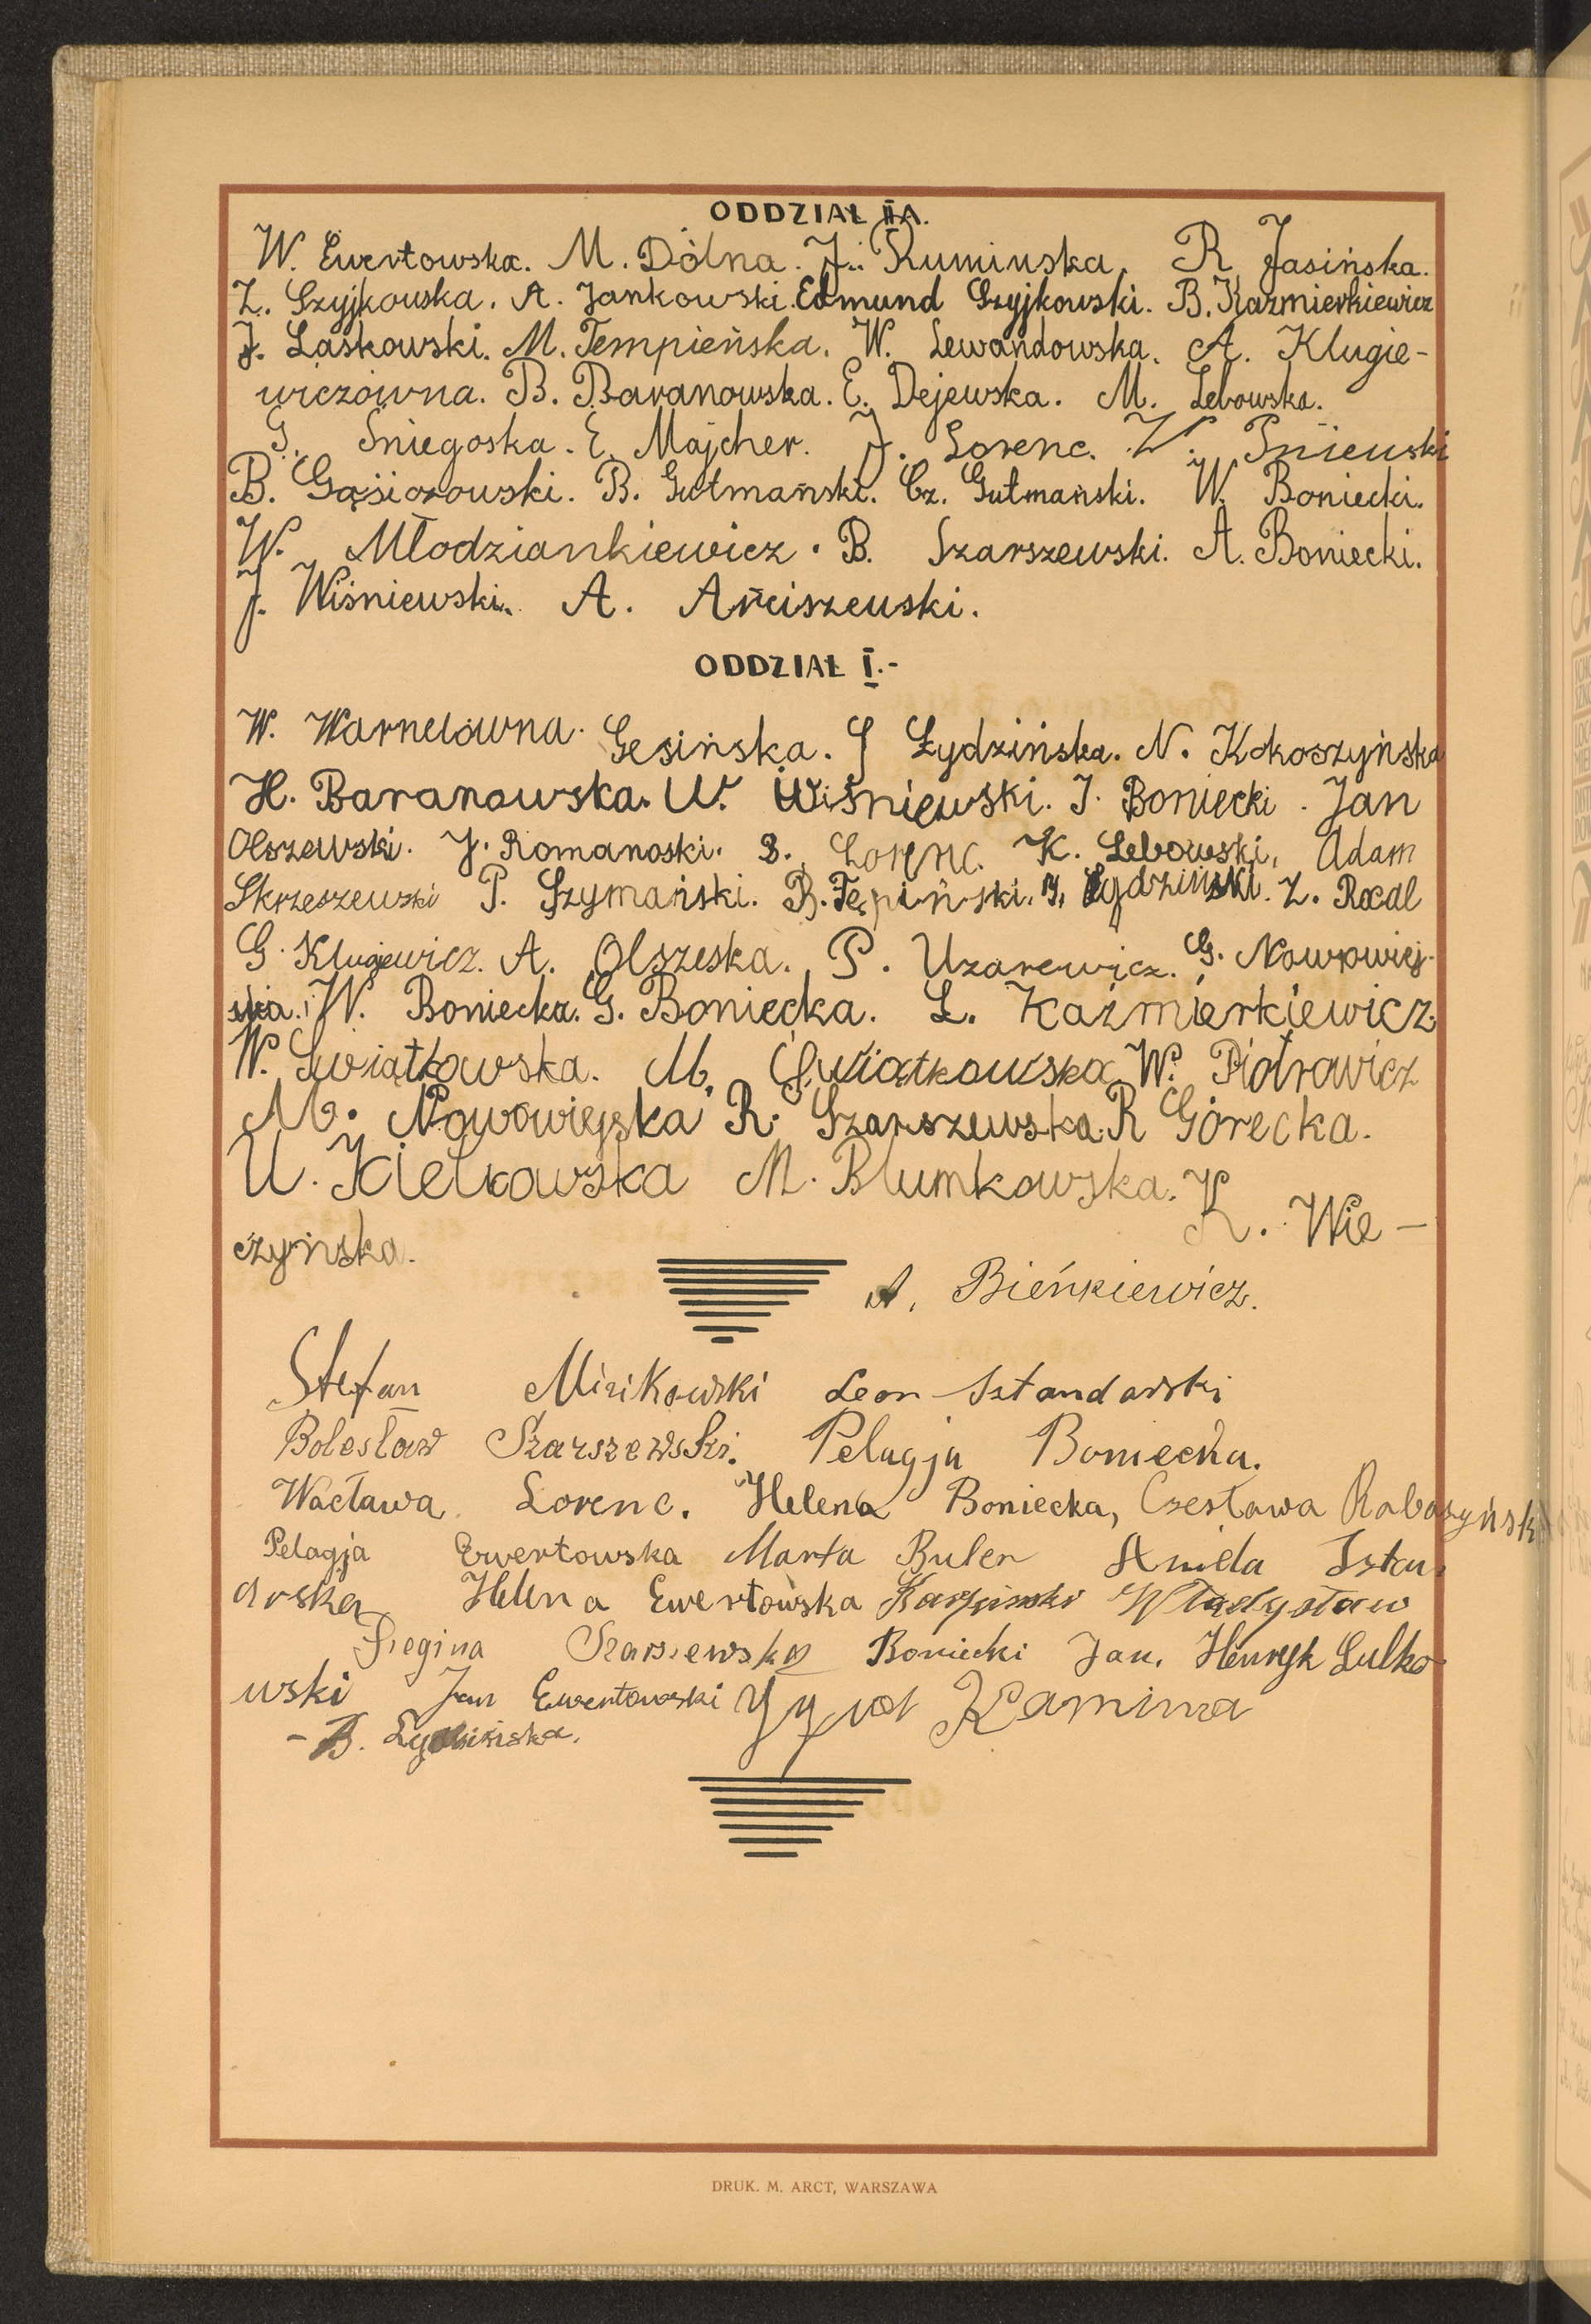 ODDZIAŁ II A.
W. Ewertowska. M. Dólna. J. Rumińska. R. Jasińska.
Z. Szyjkowska. A. Jankowski. Edmund Szyjkowski. B. Kazmierkiewicz
J. Laskowski. M. Tempieńska. W. Lewandowska. A. Klugie-
wiczówna. B. Baranowska. E. Dejewska. M. Lebowska.
G. Śniegoska. E. Majcher. J. Lorenc. W. Pniewski
B. Gąsiorowski. B. Gutmański. Cz. Gutmański. W. Boniecki.
W. Młodziankiewicz. B. Szarszewski. A. Boniecki.
J. Wiśniewski. A. Arciszewski.
ODDZIAŁ I.-
W. Warnelówna. Gesińska. J Łydzińska. N. Kokoszyńska
H. Baranowska. W. Wiśniewski. J. Boniecki. Jan
Olszewski. J. Romanoski. S. Lorenc. K. Lebowski, Adam
Skrzeszewski P. Szymański. B. Tępiński. Łydziński. Z. Rocal
G. Klugiewicz. A. Olszeska. P. Uzarewicz. G. Nowowiej-
ska. W. Boniecka. G. Boniecka. L. Kaźmierkiewicz.
W. Świątkowska. M. Świątkowska W. Piotrowicz
M. Nowowiejska R. Szarszewska. R Górecka.
U. Kiełkowska M. Blumkowska. K. Wie-
czyńska.
A. Bieńkiewicz.
Stefan Mirikowski Leon Sztandarski
Bolesław Szarszewski. Pelagja Boniecka.
Wacława Lorenc. Helena Boniecka, Czesława Rabaszyńsk
Pelagja Ewertowska Marta Buler Aniela Sztan
darska Helena Ewertowska Karpiński Władysław
Regina Szarszewska Boniecki Jan. Henryk Lulko-
wski Jan Ewertowski Kamina
- B. Łydzińska.
DRUK. M. ARCT, WARSZAWA